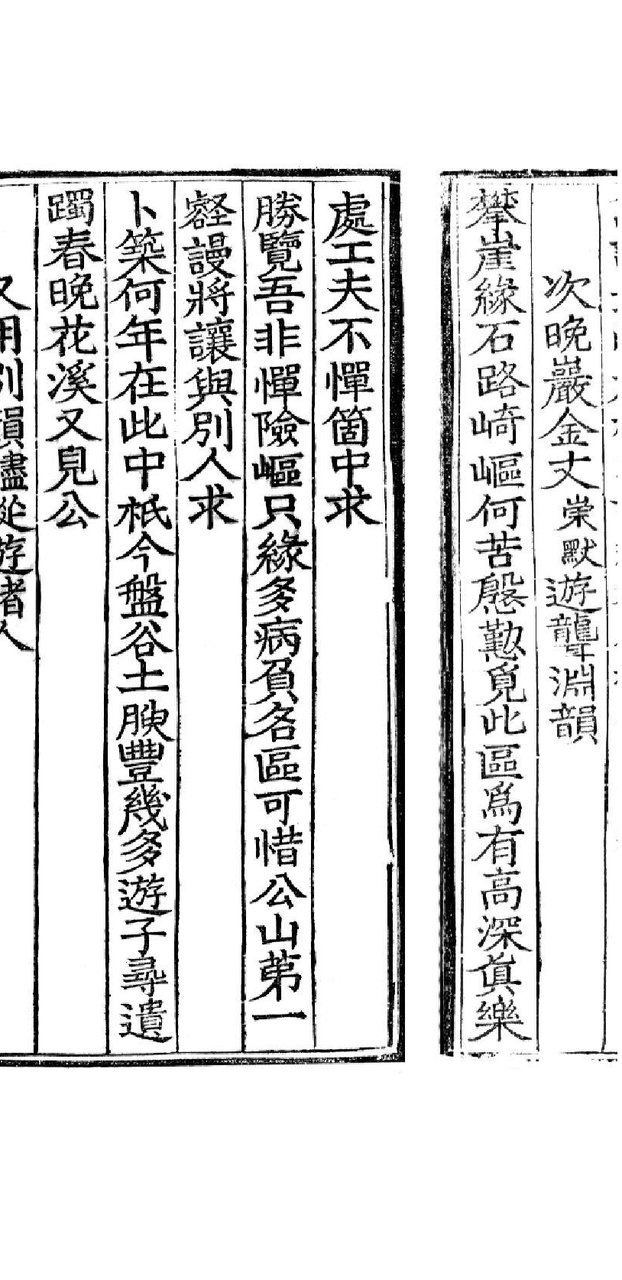 次晩巖金丈崇默遊聾淵韻
攀崖緣石路崎嶇何苦慇懃覓此區爲有高深眞樂
處工夫不憚箇中求
勝覽吾非憚險嶇只緣多病負名區可惜公山第一
壑謾將讓與別人求
卜築何年在此中柢今盤谷土腴豐幾多遊子尋遺
躅春晩花溪又見公
又用別韻𧸖從遊諸人